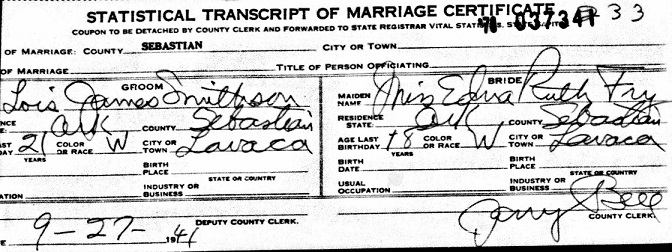 STATISTICAL TRANSCRIPT OF MARRIAGE CERTIFICATE 33
COUPON TO BE DETACHED BY COUNTY CLERK AND FORWARDED TO STATE REGISTRAR VITAL
OF MARRIAGE: COUNTY SEBASTIAN CITY OR TOWN
OF MARRIAGE TITLE OF PERSON OFFICIATING
GROOM BRIDE
Lois James Smithson MAIDEN NAME Miss Edna Ruth Fry
Ark COUNTY Sebastian RESIDENCE STATE Ark COUNTY Sebastian
21 YEARS COLOR OR RACE W CITY OR TOWN Lavaca AGE LAST BIRTHDAY 18 YEARS COLOR OR RACE W CITY OR TOWN Lavaca
BIRTH PLACE STATE OR COUNTRY BIRTH DATE BIRTH PLACE STATE OR COUNTRY
INDUSTRY OR BUSINESS USUAL OCCUPATION INDUSTRY OR BUSINESS
9-27- 1941 DEPUTY COUNTY CLERK. Jerry Bell COUNTY CLERK.